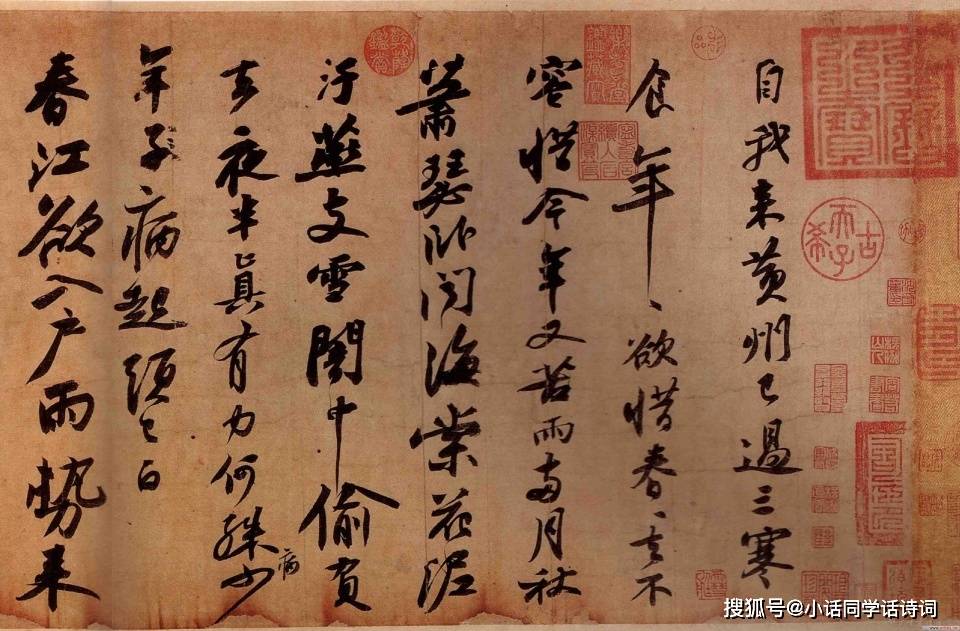 自我來黃州已過三寒
食年〻欲惜春〻去不
容惜今年又苦雨兩月秋
蕭瑟臥聞海棠花泥
汙燕支雪闇中偷負
去夜半真有力何殊少病
年子病起頭已白
春江欲入戶雨勢來
古希天子
搜狐号@小话同学话诗词